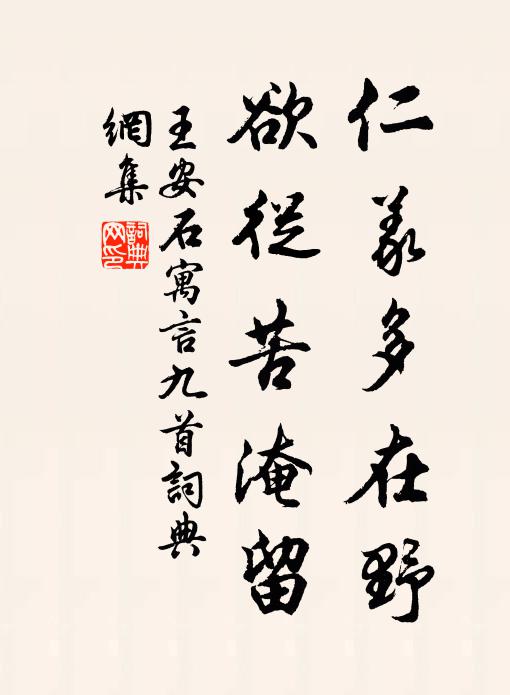 仁義多在野
欲從苦淹留
王安石寓言九首詞典
網集
詞典
网印